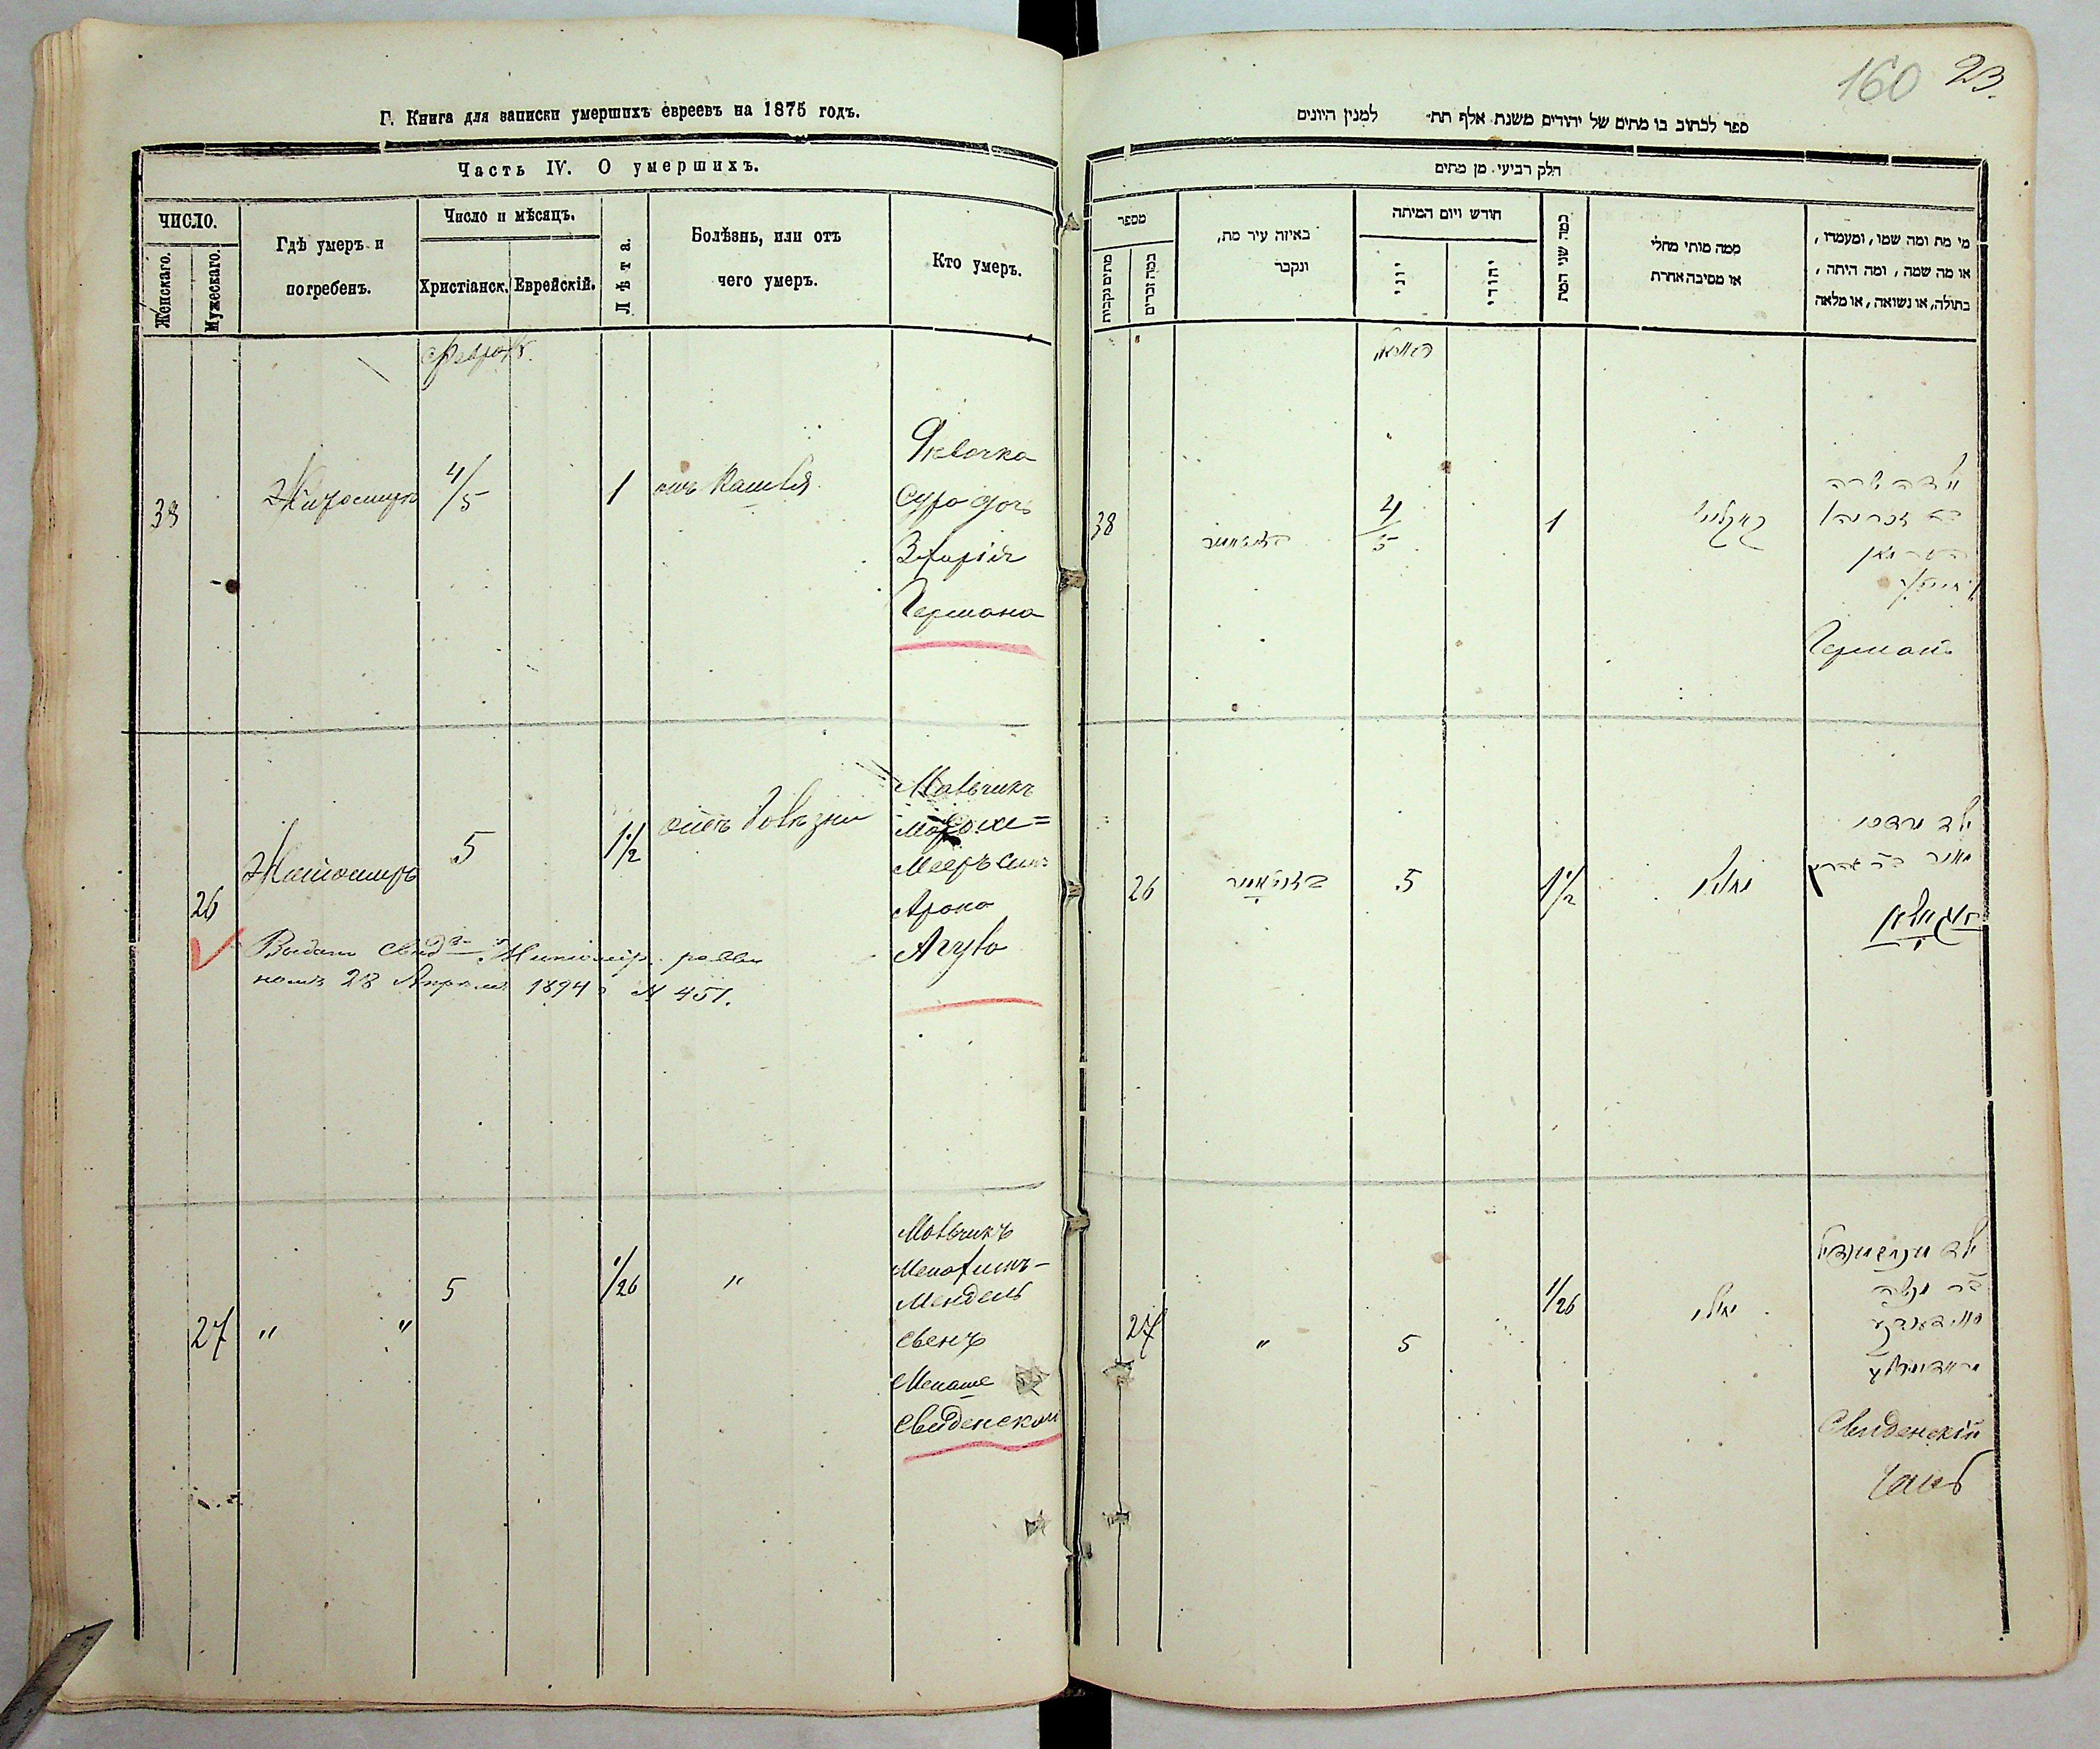 Г. Книга для записки умершихъ евреевъ на 1875 годъ.
Часть IV. О умершихъ.
ЧИСЛО.
Женскаго.
Мужескаго.
Гдѣ умеръ и
погребенъ.
Число и мѣсяцъ.
Христіанск.
Еврейскій.
Лѣта.
Болѣзнь, или отъ
чего умеръ.
Кто умеръ.
38
4/5
1
отъ кашля
Дѣвочка
Сура дочь
Захарія
Германа
26
Житомиръ
5
1 1/2
отъ болѣзни
Мальчикъ
Мееръ сынъ
Арона
Выдано свид. Житомір. равви
номъ 28 Апрѣля 1894 г № 451.
27
" "
5
1/26
"
Мальчикъ
Менахимъ-
Мендель
сынъ
Менаше
160 23.
ספר לכתוב בו מתים של יהודים משנת אלף תת״ למנין היונים
חלק רביעי מן מתים
מספר
מתים נקבות
כמה זכרים
באיזה עיר מת,
ונקבר
חודש ויום המיתה
יוני
יהודי
כמה שני המת
ממה מותי מחלי
או מסיבה אחרת
מי מת ומה שמו, ומעמדו,
או מה שמה, ומה היתה,
בתולה, או נשואה, או מלאה
38
זיטאמיר
4/5
1
ילדה שרה
Германъ
26
זיטאמיר
5
1 1/2
ילד מרדכי
מאיר ב״ר אהרן
27
"
5
1/26
ילד מנחם מענדיל
ב״ר מנשה
Свиденскій